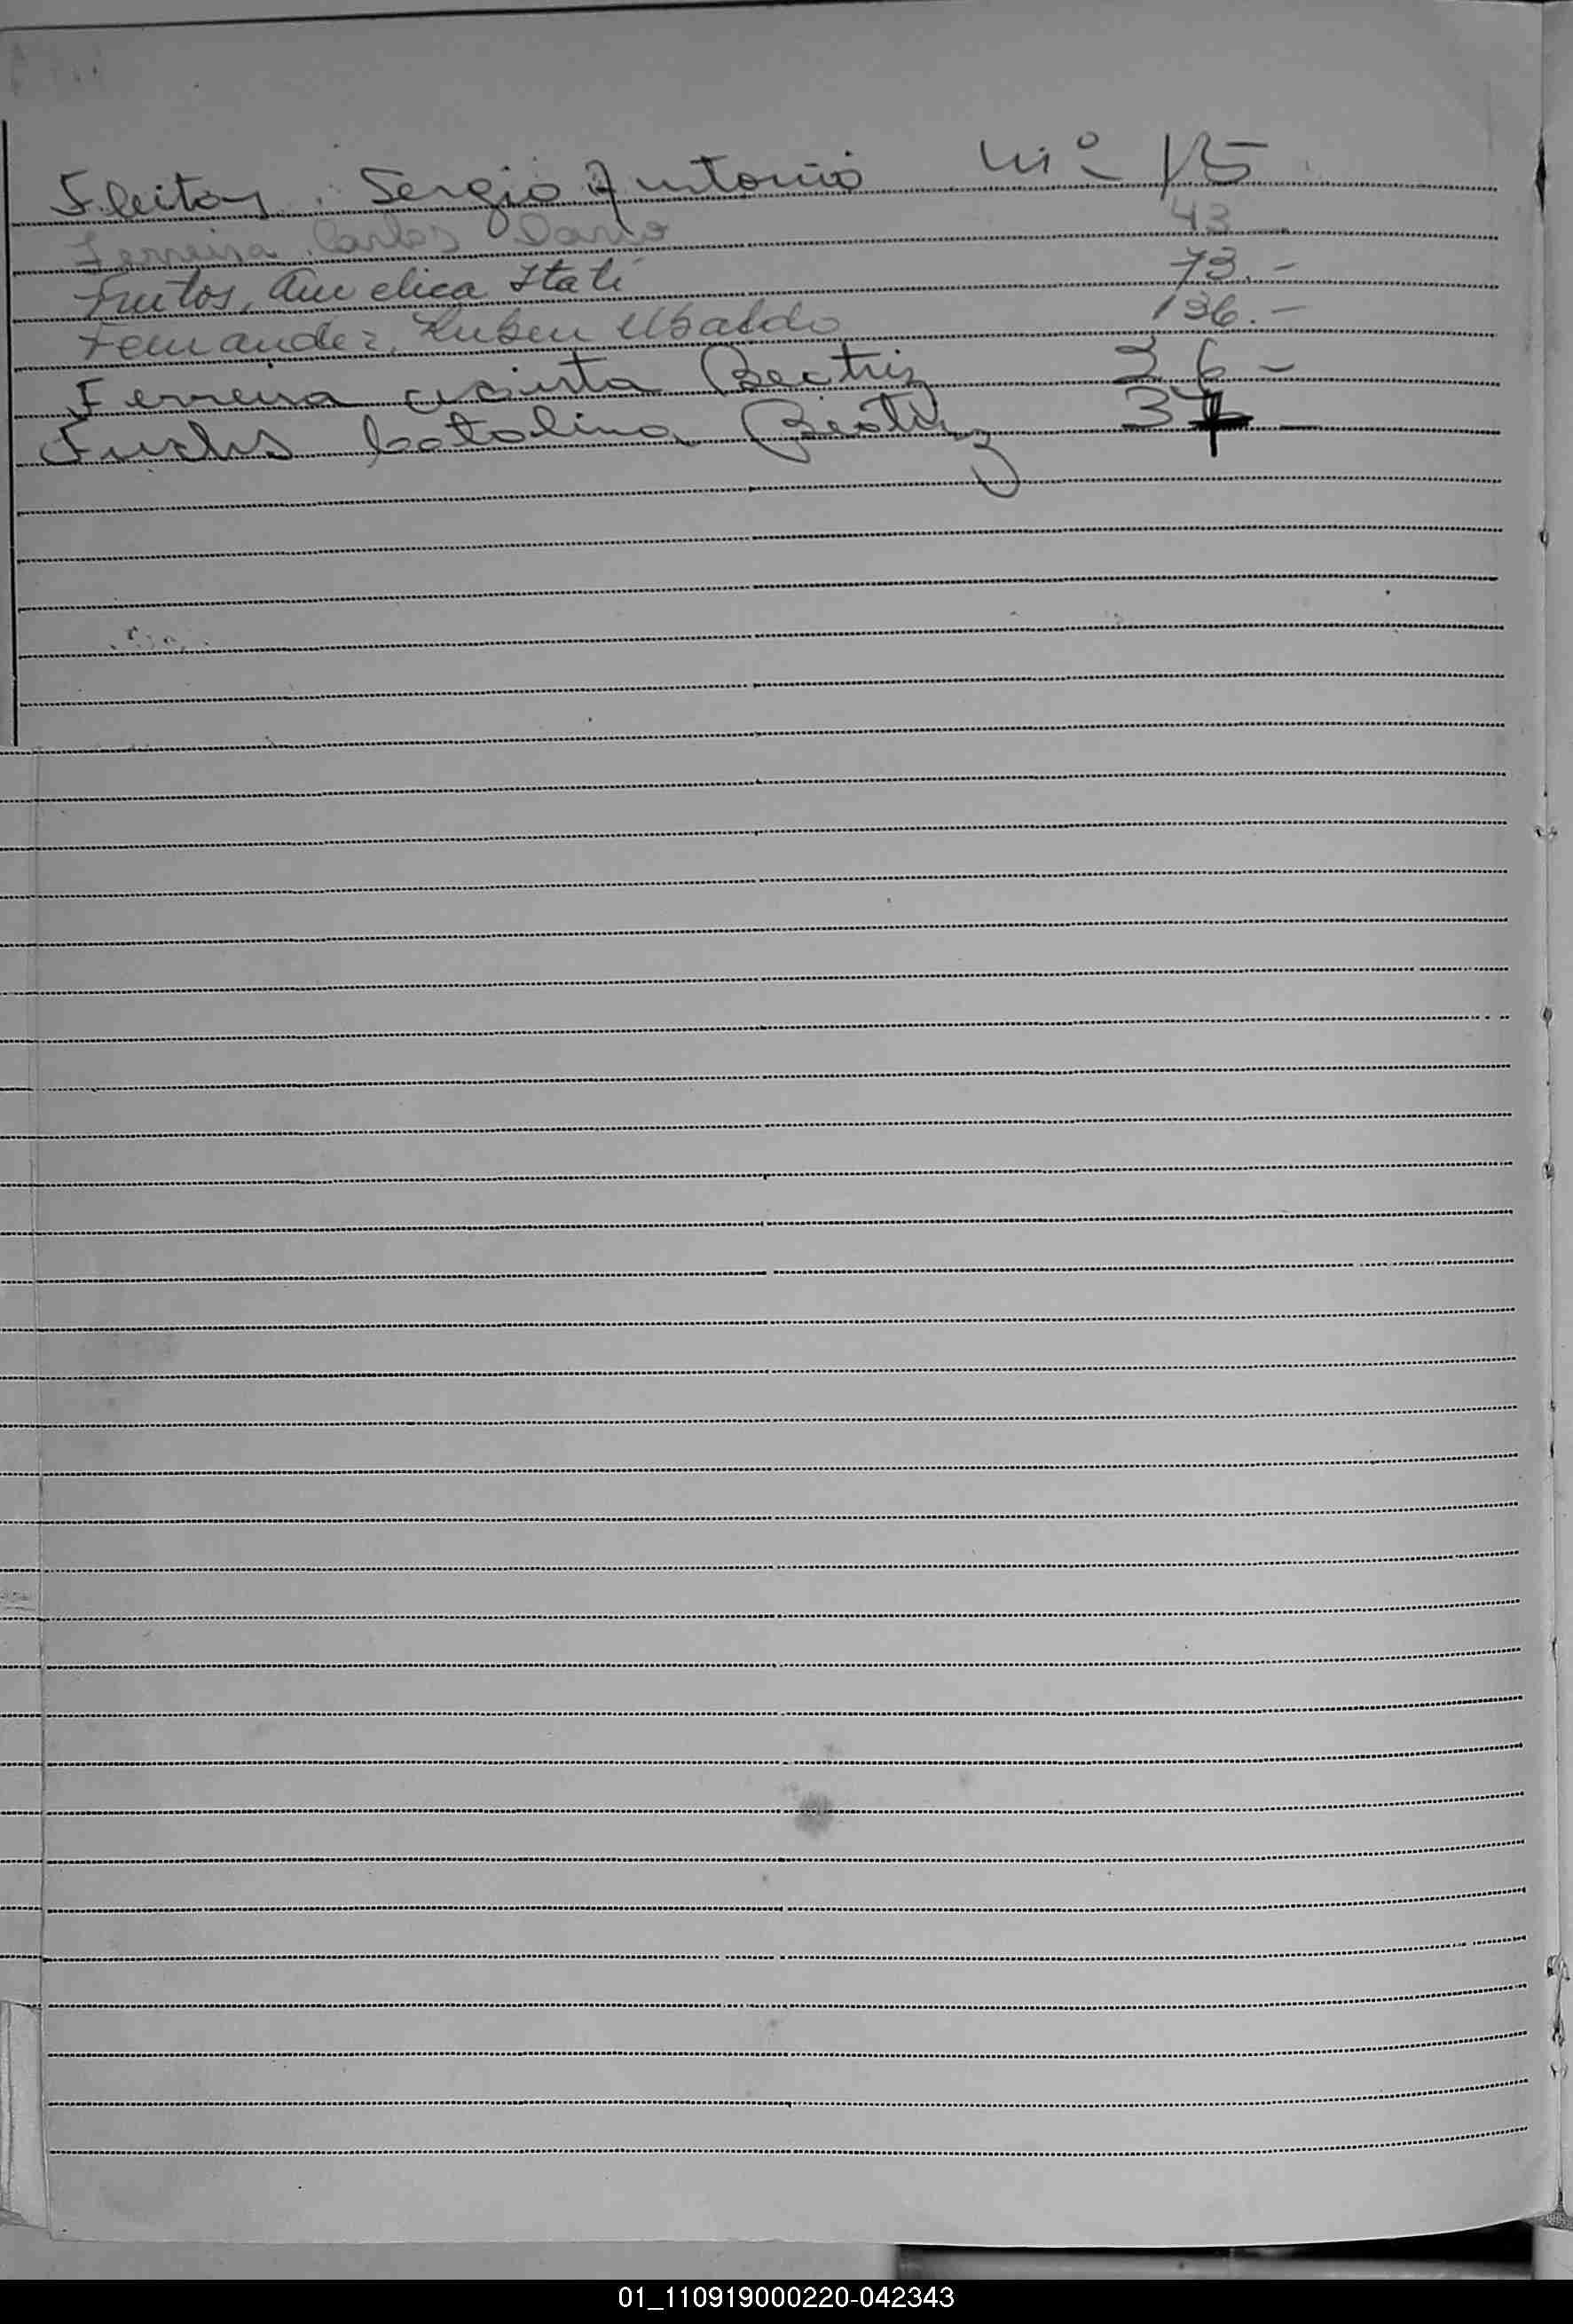 Fleitas, Sergio Antonio Nº 15
Ferreira, Carlos Dario 43
Frutos, Angelica Itatí 73.-
Fernandez, Ruben Ubaldo 136.-
Ferreira Beatriz 36-
Fuchs Catalina Beatriz 37-
01_110919000220-042343